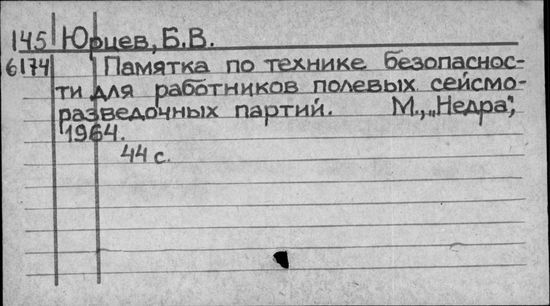 145 Юрцев, Б.В.
6174 Памятка по технике безопаснос-
ти для работников полевых сейсмо-
разведочных партий. М., „Недра",
1964.
44 с.